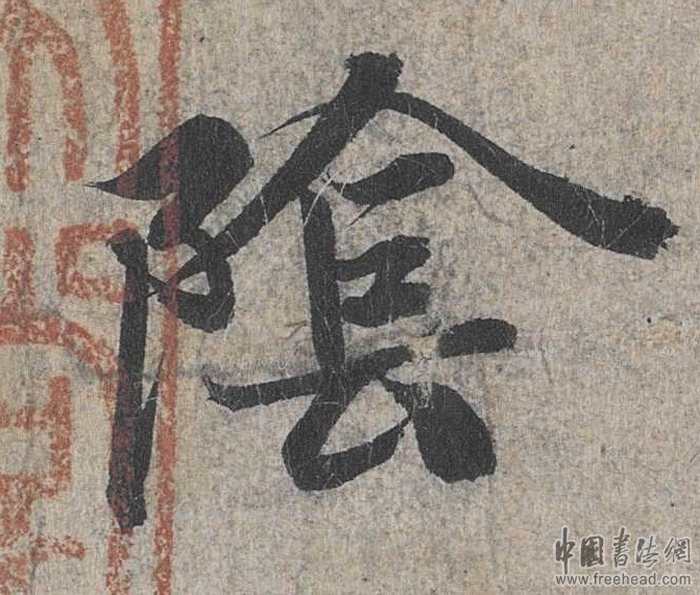 陰
中国书法网
www.freehead.com